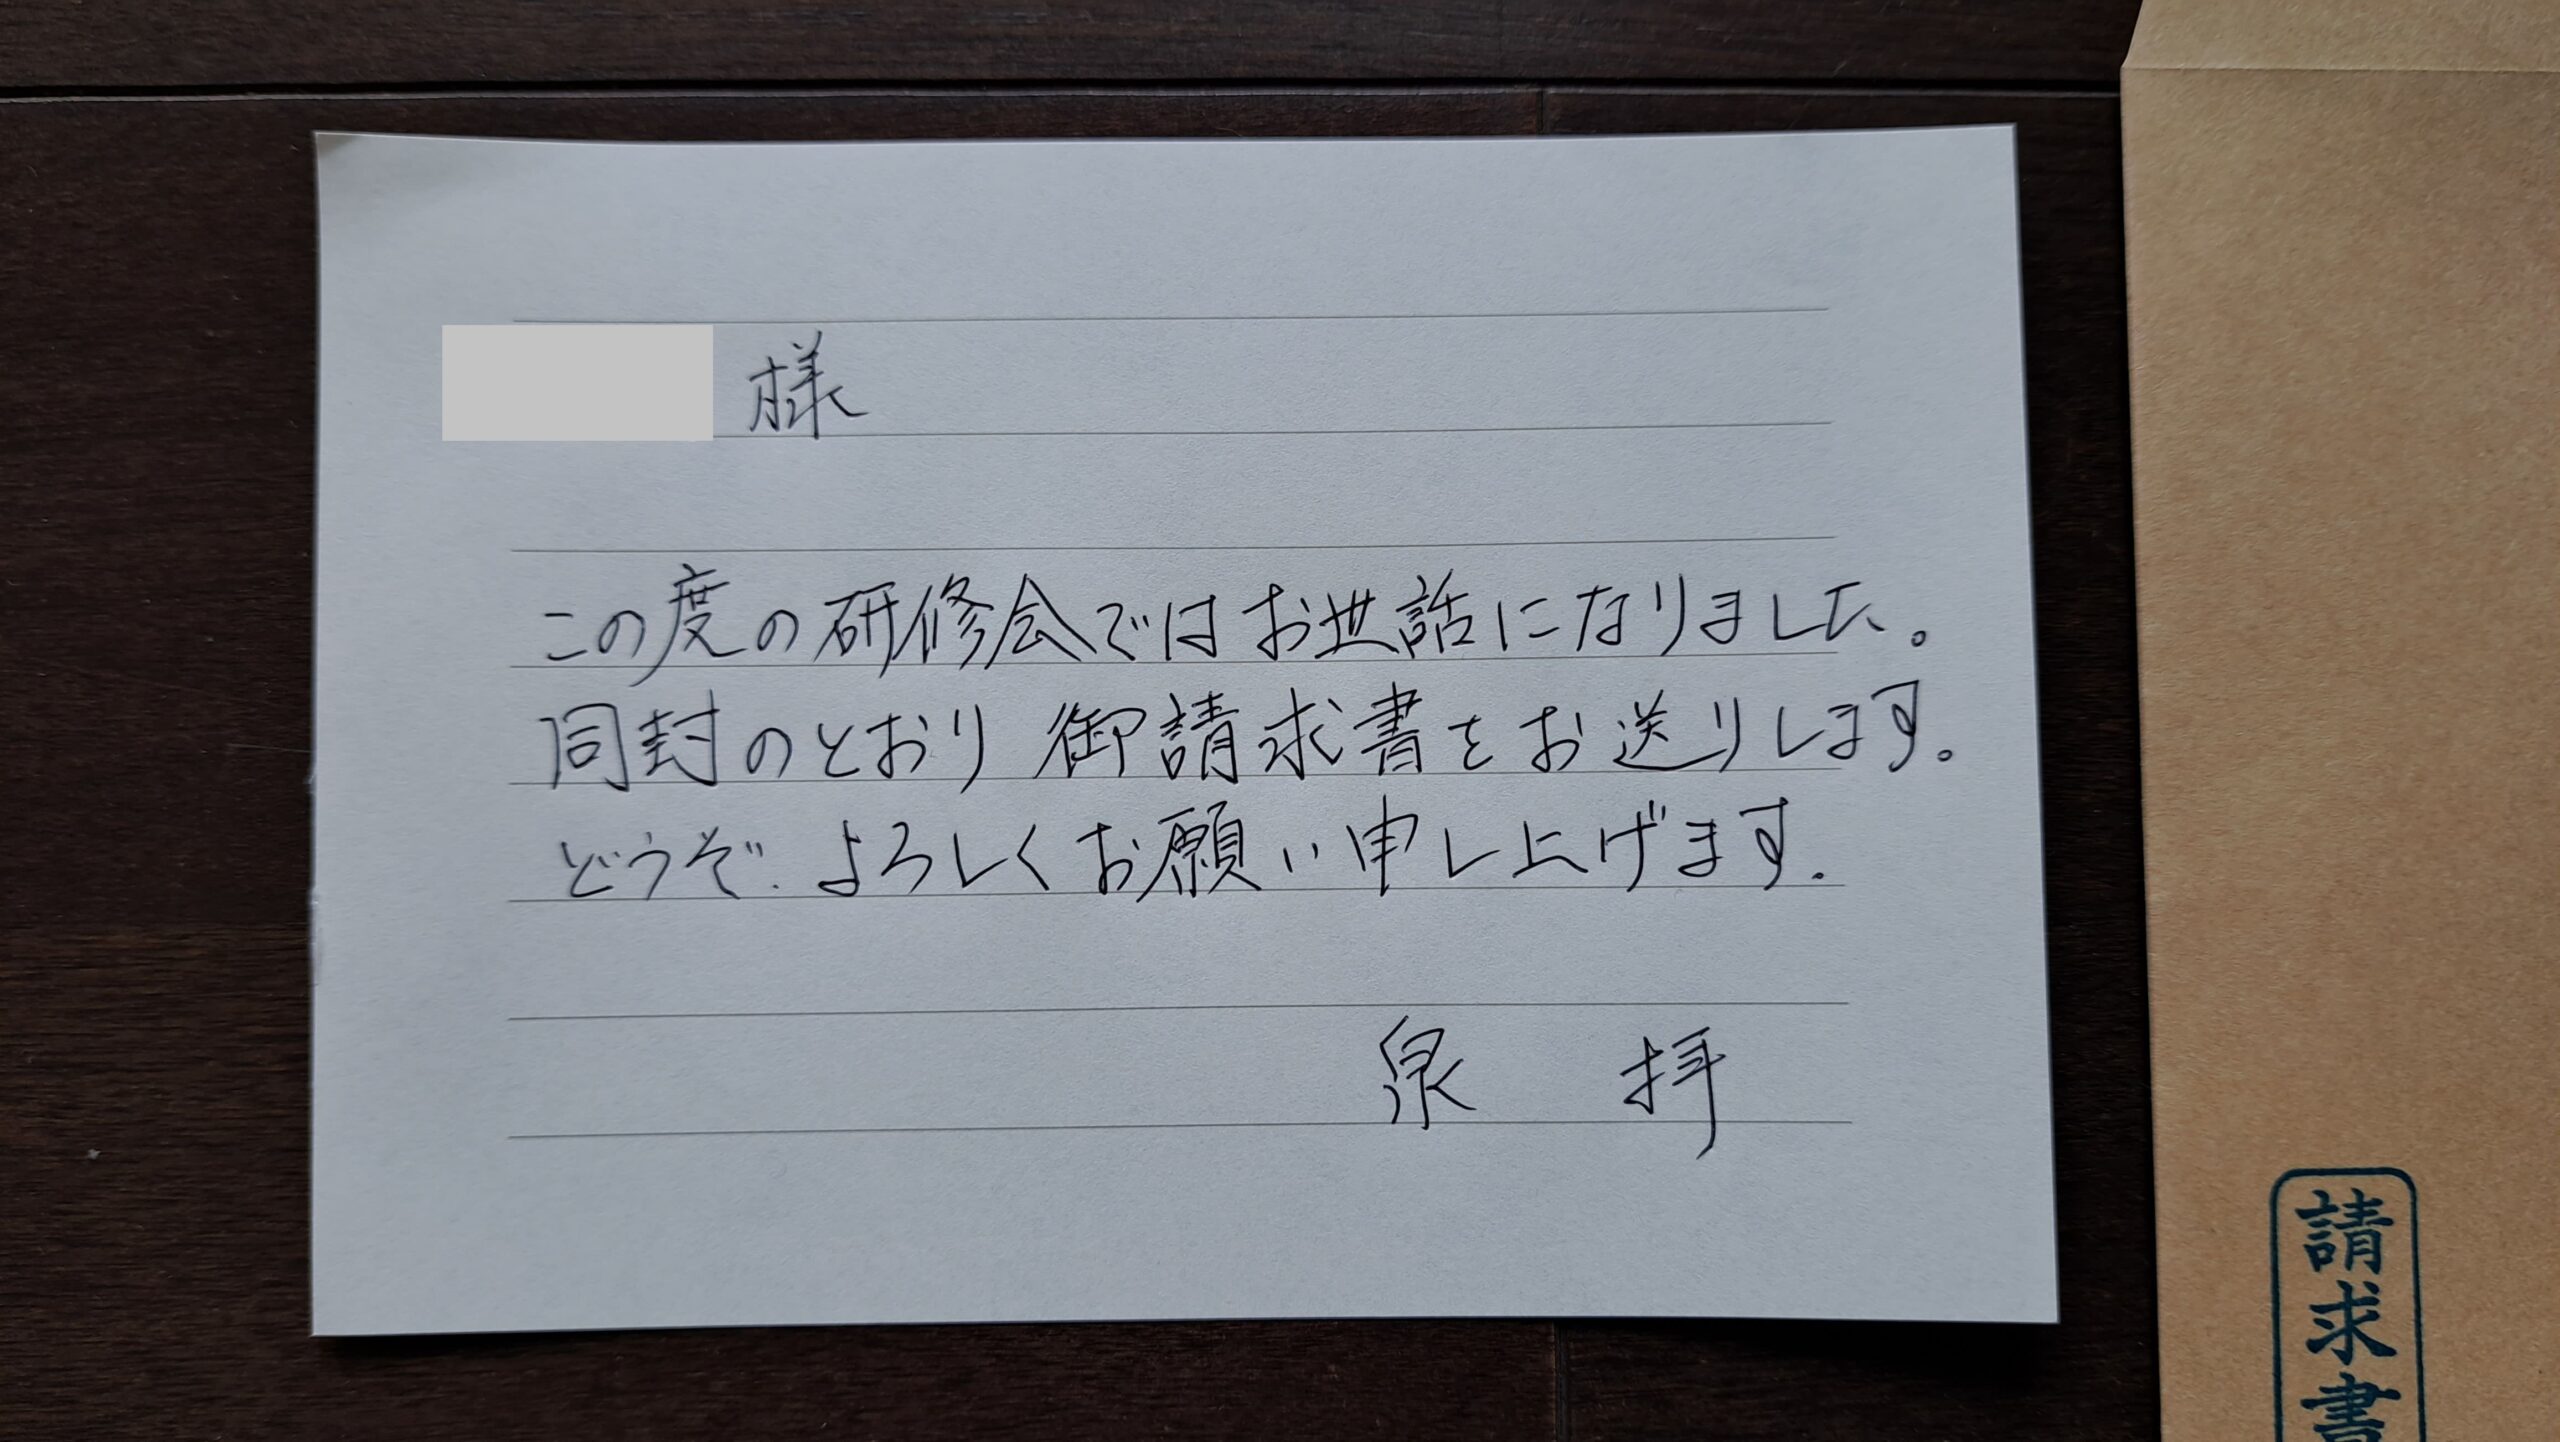 様
この度の研修会ではお世話になりました。
同封のとおり御請求書をお送りします。
どうぞ、よろしくお願い申し上げます。
泉 拝
請求書